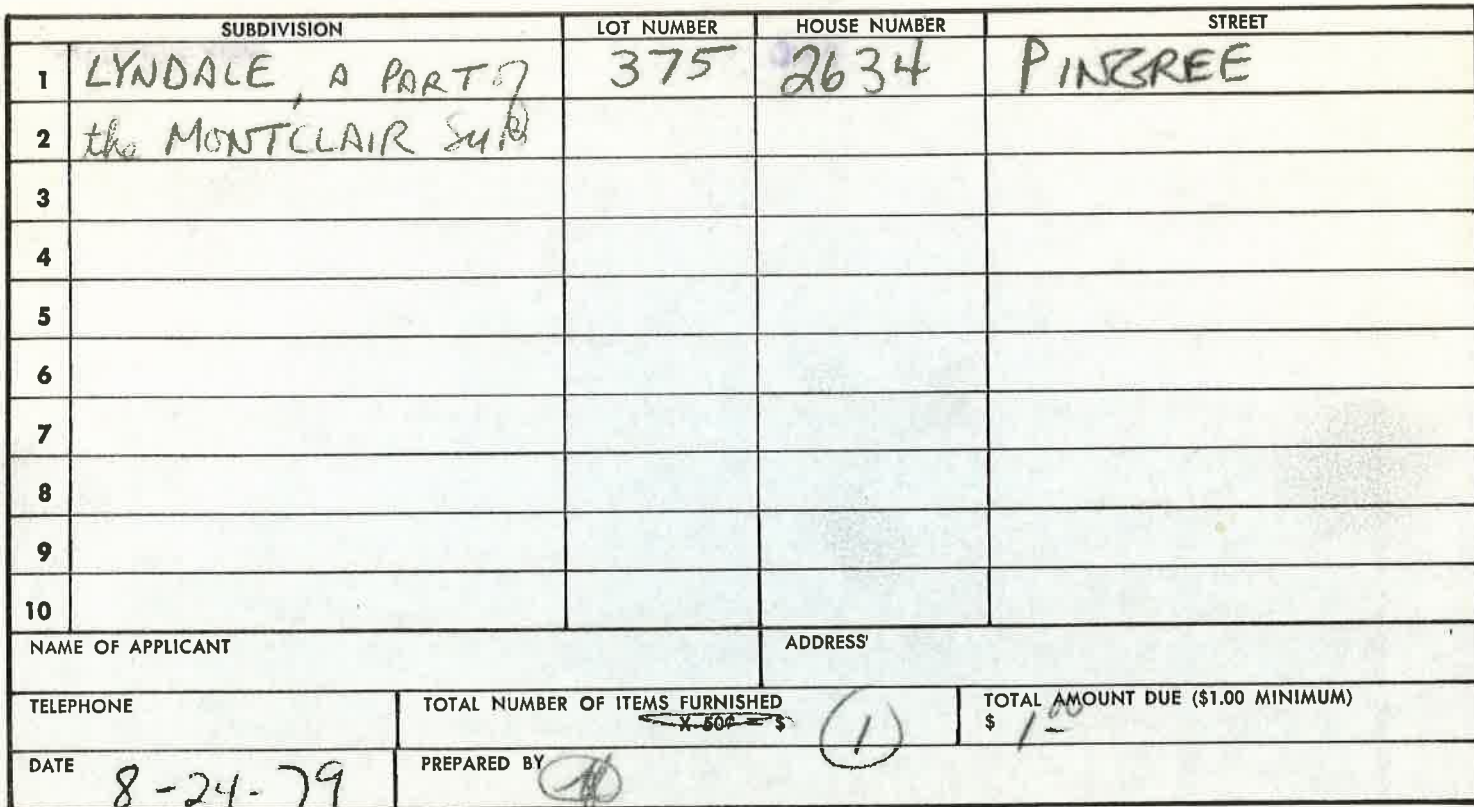 SUBDIVISION LOT NUMBER HOUSE NUMBER STREET
1 LYNDALE, A PART of 375 2634 PINGREE
2 the MONTCLAIR SUB
3
4
5
6
7
8
9
10
NAME OF APPLICANT ADDRESS
TELEPHONE TOTAL NUMBER OF ITEMS FURNISHED TOTAL AMOUNT DUE ($1.00 MINIMUM)
X 50¢ = $ 1 $ 1.00
DATE 8-24-79 PREPARED BY